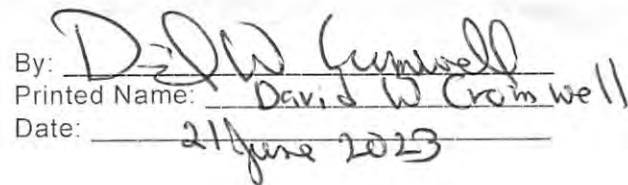 By: D W Cromwell
Printed Name: David W Cromwell
Date: 21 June 2023